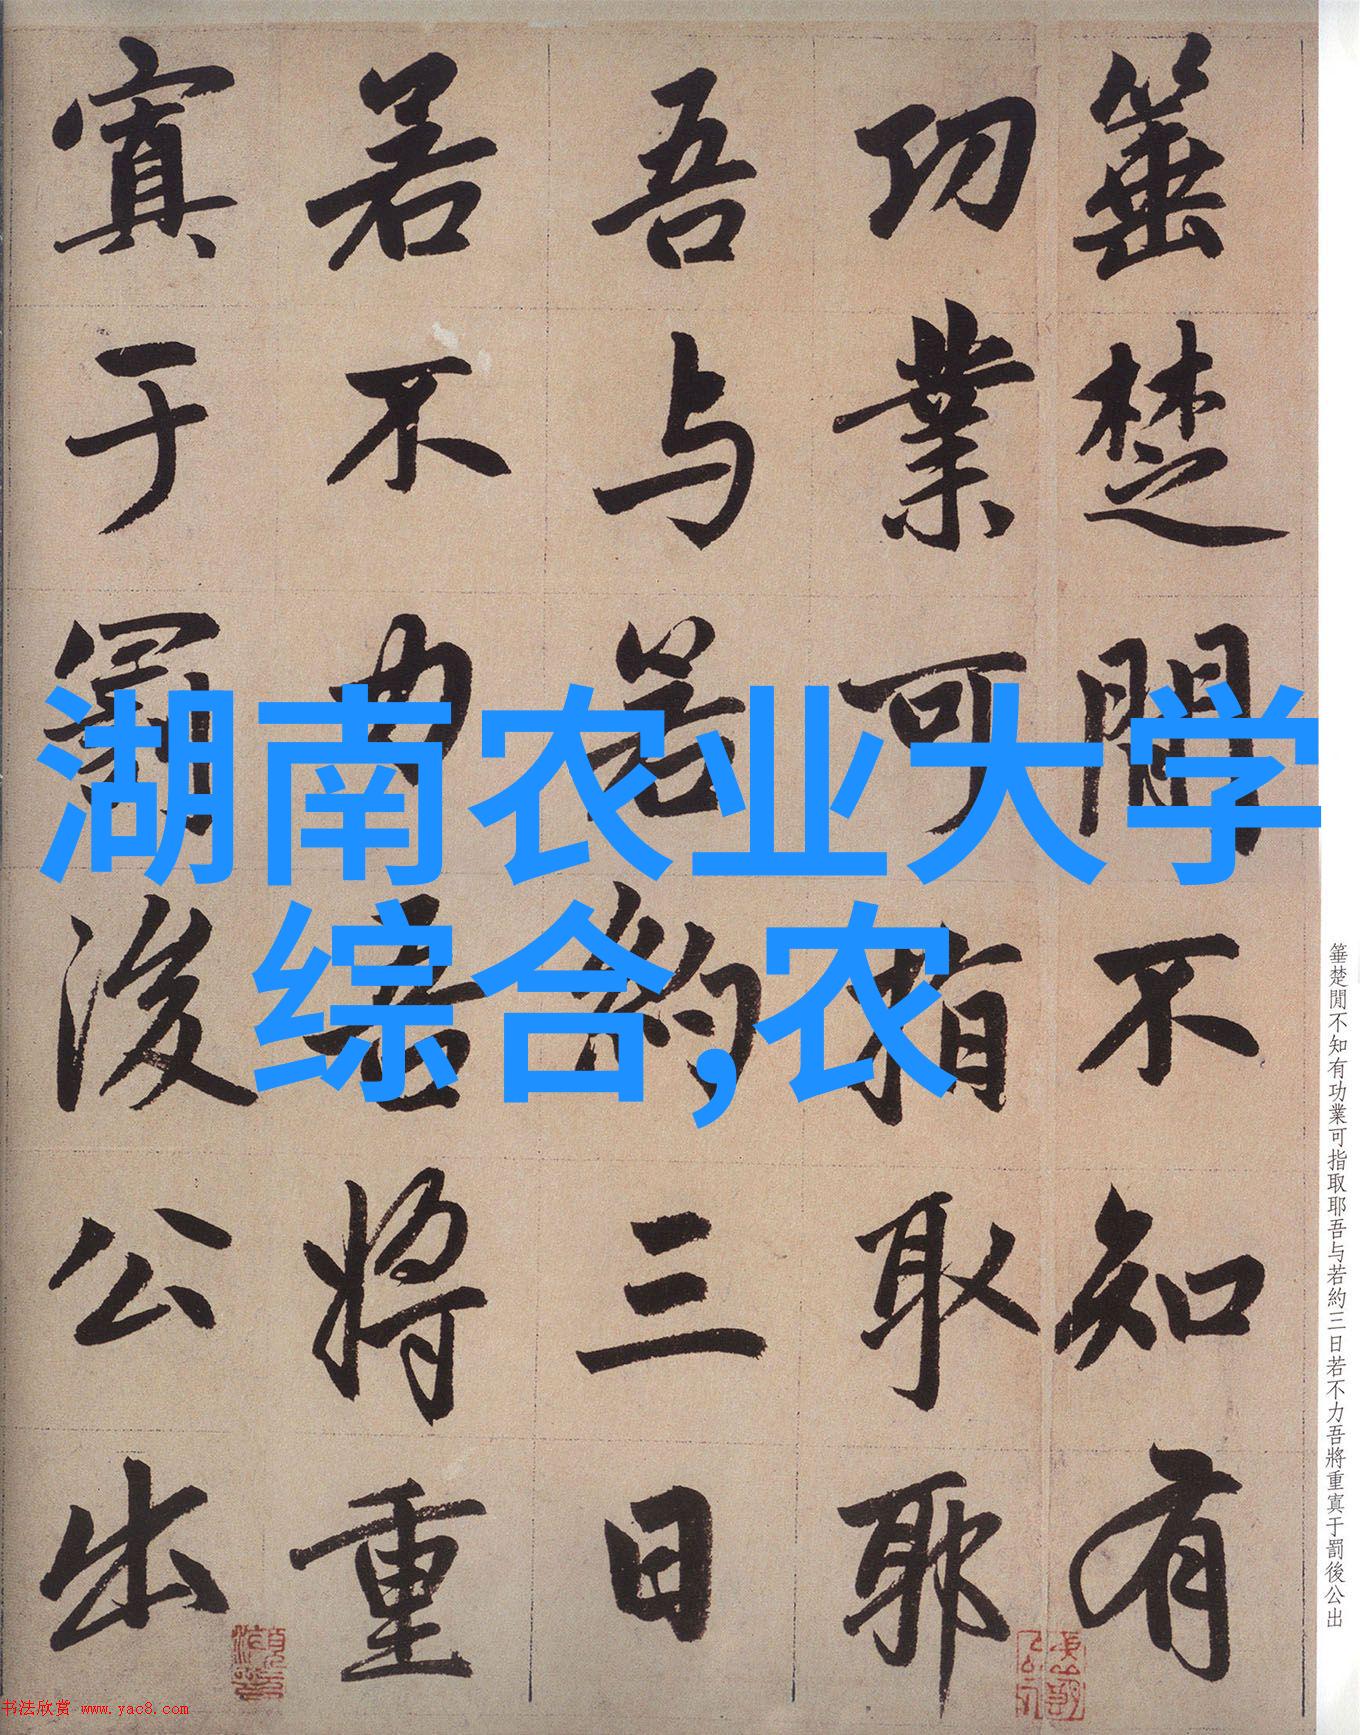 湖南农业大学
综合,农
箠楚閒不知有
功業可指取耶
吾与若約三日
若不力吾將重
寘于罰後公出
箠楚閒不知有功業可指取耶吾与若約三日若不力吾將重寘于罰後公出
书法欣赏 www.yac8.com